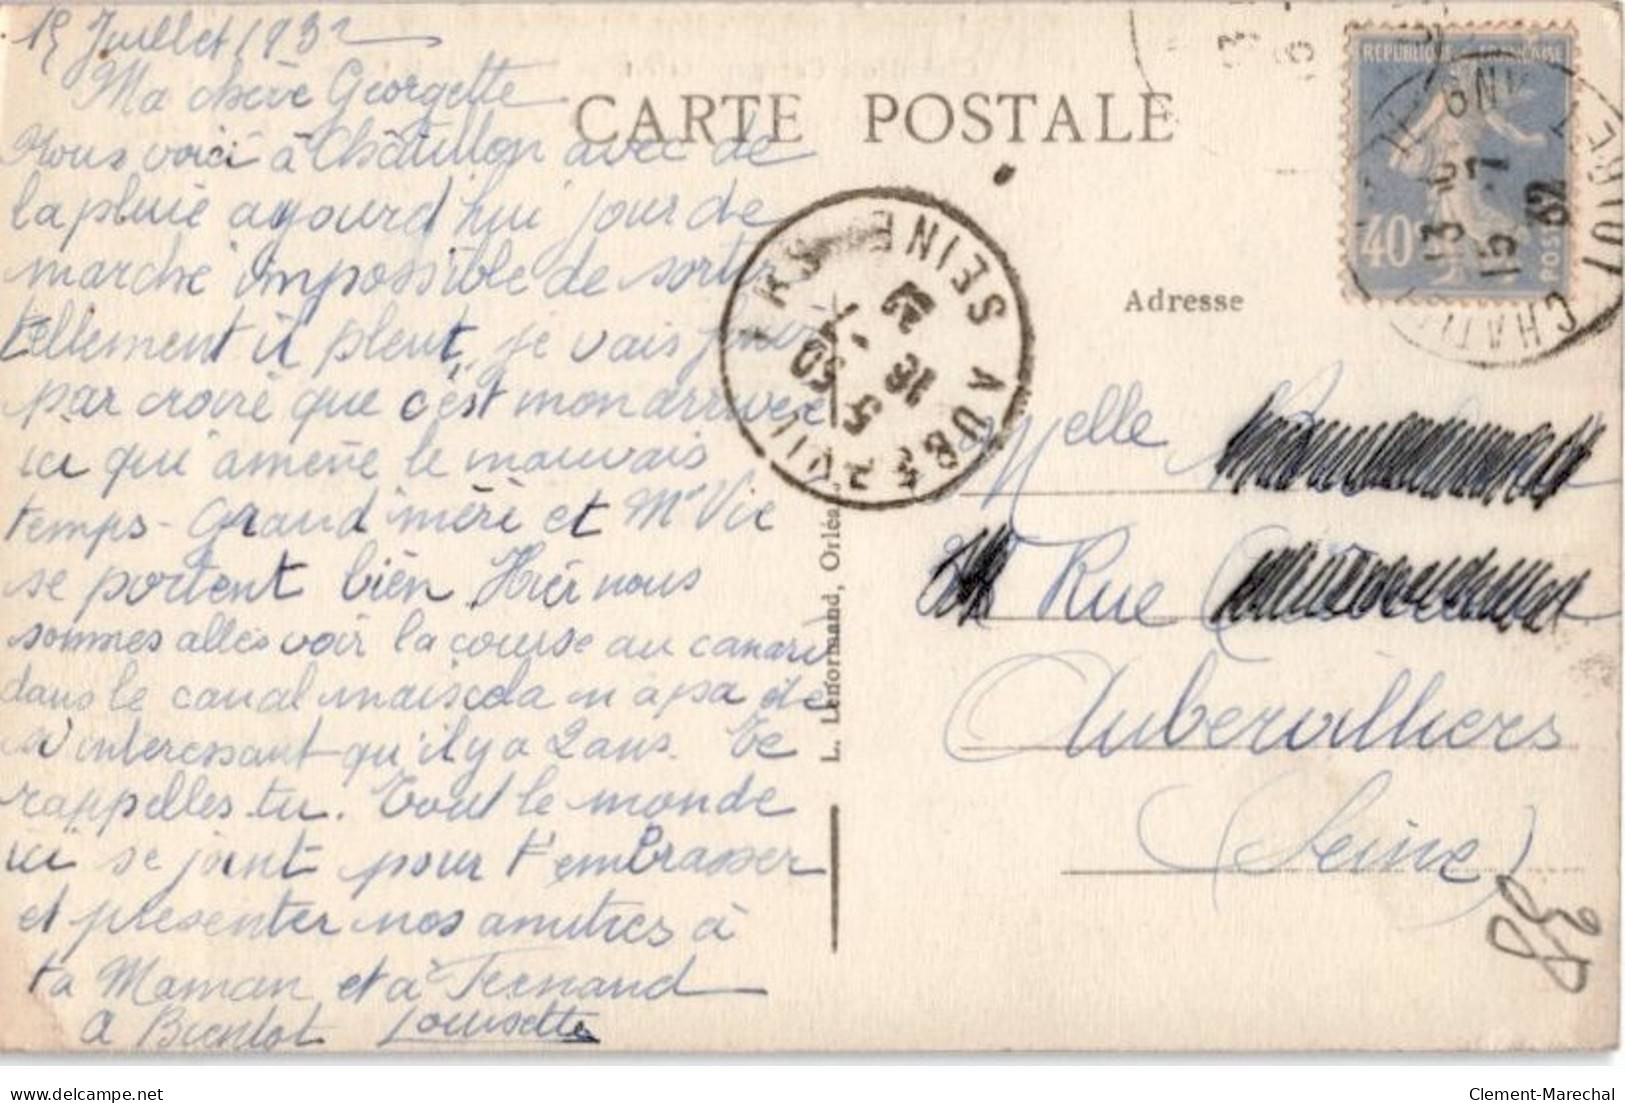 15 Juillet 1932
Ma chère Georgette
Nous voici à Châtillon avec de
la pluie aujourd'hui jour de
marché impossible de sortir
tellement il pleut, je vais finir
par croire que c'est mon arrivée
ici qui amène le mauvais
temps - Grand'mère et Mr Vie
se portent bien Hier nous
sommes allés voir la course au canard
dans le canal mais cela n'a pas été
si intéressant qu'il y a 2 ans. Te
rappelles-tu. Tout le monde
ici se joint pour t'embrasser
et présenter nos amitiés à
ta Maman et à Fernand
A Bientôt Louisette
CARTE POSTALE
L. Lenormand, Orléans
AUBERVILLIERS SEINE
5 30
16 . 7
32
REPUBLIQUE FRANCAISE
40c
POSTES
CHATILLON
LOIRET
13
15 . 7
32
Adresse
Melle
Rue
Aubervilliers
(Seine)
delcampe.net
Clement-Marechal